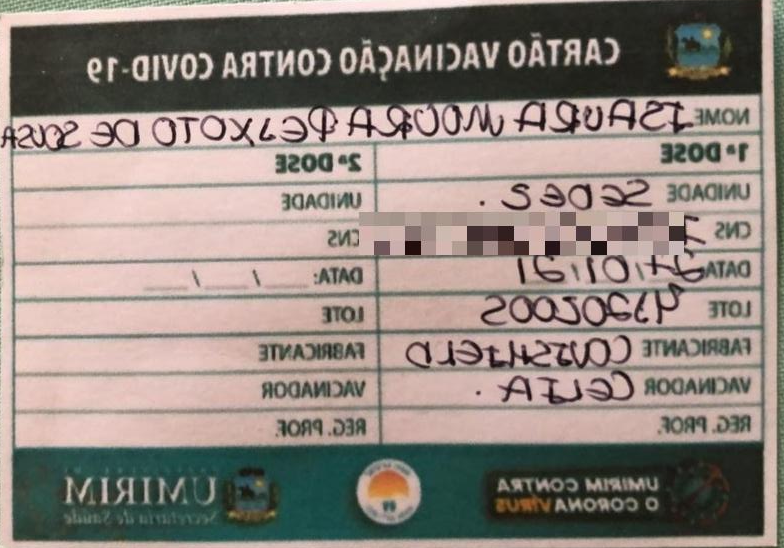 CARTÃO VACINAÇÃO CONTRA COVID-19
NOME ISAURA MOURA PEIXOTO DE SOUSA
1ª DOSE 2ª DOSE
UNIDADE SEDE 2. UNIDADE
CNS CNS
DATA /01/21 DATA: __/__/__
LOTE 4120Z005 LOTE
FABRICANTE COVISHIELD FABRICANTE
VACINADOR CELIA. VACINADOR
REG. PROF. REG. PROF.
UMIRIM CONTRA
O CORONAVÍRUS
UMIRIM
Secretaria de Saúde